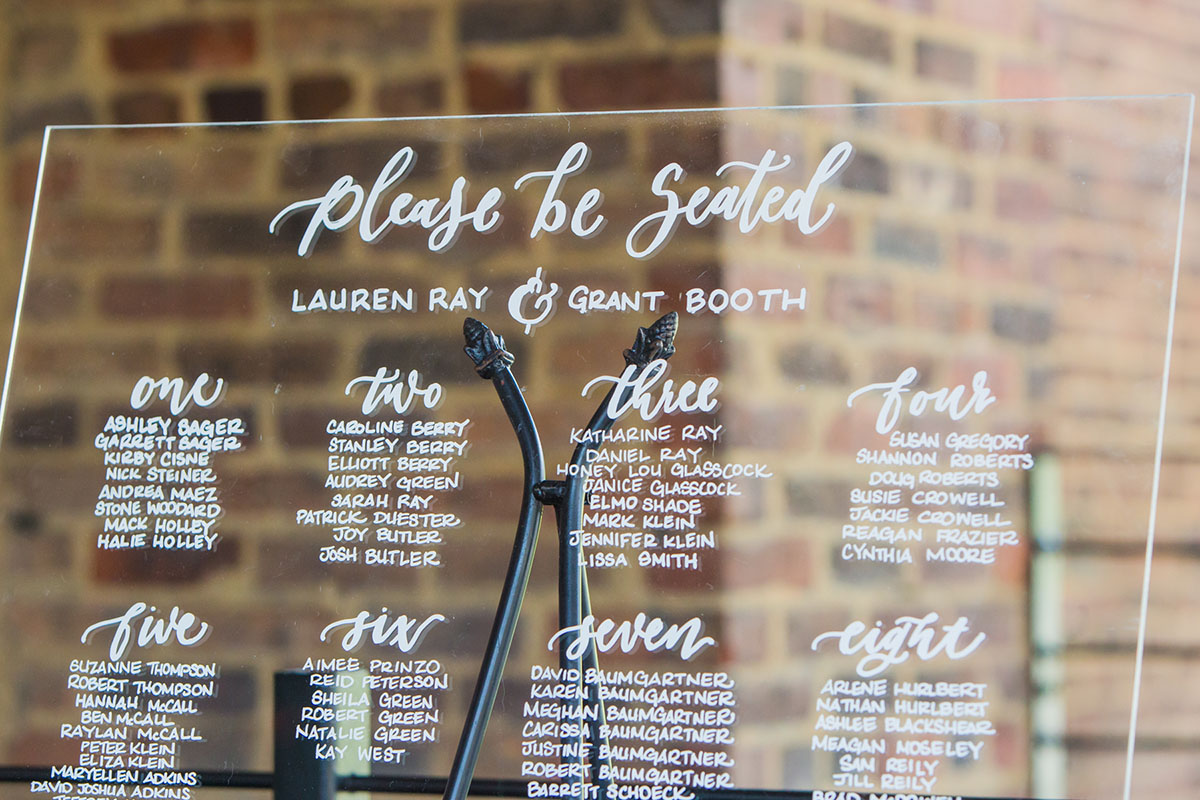 please be seated
LAUREN RAY & GRANT BOOTH
one
ASHLEY SAGER
GARRETT SAGER
KIRBY CISNE
NICK STEINER
ANDREA MAEZ
STONE WOODARD
MACK HOLLEY
HALIE HOLLEY
two
CAROLINE BERRY
STANLEY BERRY
ELLIOTT BERRY
AUDREY GREEN
SARAH RAY
PATRICK DUESTER
JOY BUTLER
JOSH BUTLER
three
KATHARINE RAY
DANIEL RAY
HONEY LOU GLASSCOCK
JANICE GLASSCOCK
ELMO SHADE
MARK KLEIN
JENNIFER KLEIN
LISSA SMITH
four
SUSAN GREGORY
SHANNON ROBERTS
DOUG ROBERTS
SUSIE CROWELL
JACKIE CROWELL
REAGAN FRAZIER
CYNTHIA MOORE
five
SUZANNE THOMPSON
ROBERT THOMPSON
HANNAH McCALL
BEN McCALL
RAYLAN McCALL
PETER KLEIN
ELIZA KLEIN
MARYELLEN ADKINS
DAVID JOSHUA ADKINS
six
AIMEE PRINZO
REID PETERSON
SHEILA GREEN
ROBERT GREEN
NATALIE GREEN
KAY WEST
seven
DAVID BAUMGARTNER
KAREN BAUMGARTNER
MEGHAN BAUMGARTNER
CARISSA BAUMGARTNER
JUSTINE BAUMGARTNER
ROBERT BAUMGARTNER
BARRETT SCHOECK
eight
ARLENE HURLBERT
NATHAN HURLBERT
ASHLEE BLACKSHEAR
MEAGAN MOSELEY
SAN REILY
JILL REILY